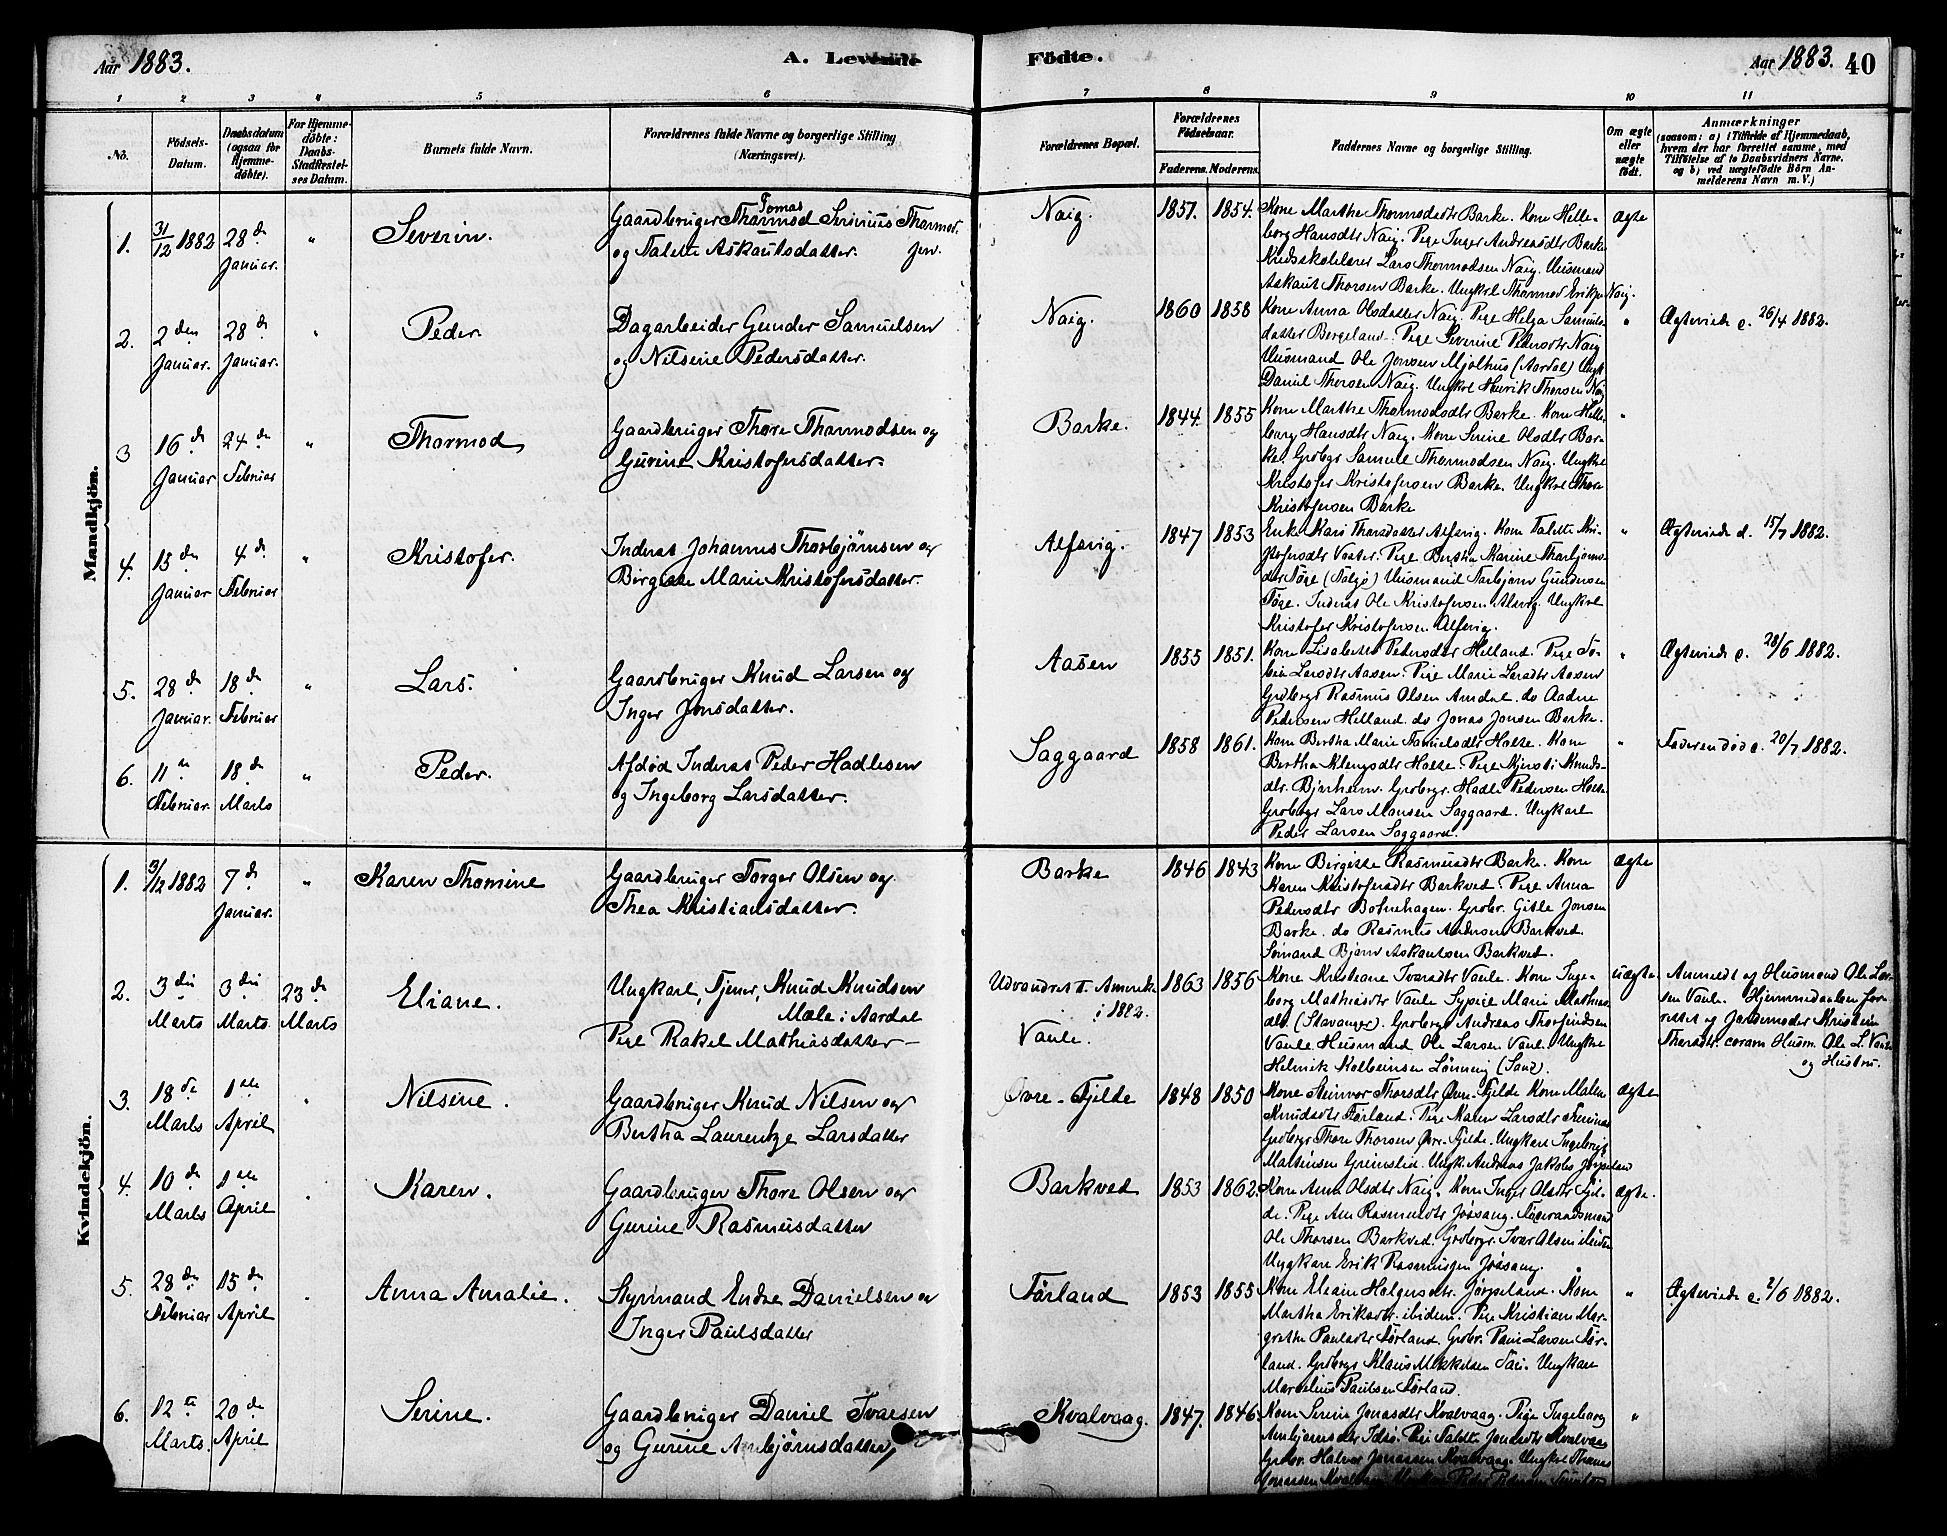 Aar 1883.
A. Levende
Födte.
Aar 1883.
40
1 2 3 4 5 6 7 8 9 10 11
No.
Födsels-
Datum.
Daabsdatum
(ogsaa for
Hjemme-
døbte).
For Hjemme-
døbte:
Daabs-
Stadfæstel-
ses Datum.
Barnets fulde Navn.
Forældrenes fulde Navne og borgerlige Stilling
(Næringsvei).
Forældrenes Bopæl.
Forældrenes
Födselsaar.
Faderens. Moderens.
Faddernes Navne og borgerlige Stilling.
Om ægte
eller
uægte
født.
Anmærkninger
(saasom: a) i Tilfælde af Hjemmedaab,
hvem der har forrettet samme, med
Tilføielse af to Daabsvidners Navne,
og b) ved uægtefödte Börn An-
melderens Navn m. V.)
Mandkjön.
1.
31/12 1882
28de
Januar.
"
Severin.
Tomas
Gaardbruger Thormod Serinius Thormod-
og Talette Askautsdatter. sen.
Naig.
1851. 1854.
Kone Marthe Thormodsdtr Barke. Kone Helle-
borg Hansdtr Naig. Pige Inger Andreasdtr Barke
Kredsskolelærer Lars Thormodsen Naig. Huusmand
Askaut Thorsen Barke. Ungkrl Thormod Eriks. Naig.
ægte
2.
2den
Januar.
28de
Januar.
"
Peder.
Dagarbeider Gunder Samuelsen
og Nilsine Pedersdatter.
Naig.
1860 1858
Kone Anna Olsdatter Naig. Pige Helga Samuels-
datter Bergeland. Pige Severine Pedersdtr Naig
Huusmand Ole Jonsen Mjølhus (Aardal) Ungk
Daniel Thorsen Naig. Ungkrl Henrik Thorsen Naig
"
Ægteviede d. 26/4 1882.
3
16de
Januar
24de
Februar
"
Thormod
Gaardbruger Thore Thormodsen og
Gurine Kristofersdatter.
Barke.
1844. 1855
Kone Marthe Thormodsdtr Barke. Kone Helle-
borg Hansdtr Naig. Kone Serine Olsdtr Bar-
ke. Grdbgr Samuel Thormodsen Naig. Ungkrl
Kristofer Kristofersen Barke. Ungkrl Thore
Kristofersen Barke
"
4.
15den
Januar
4de
Februar
"
Kristofer.
Inderst Johannes Thorbjørnsen og
Birgitte Marie Kristofersdatter.
Alfsvig.
1847 1853
Enke Kari Thorsdatter Alfsvig. Kone Talette Kri-
stofersdtr Pige Bertha Karine Thorbjørns-
dtr Tøge (Talgø) Huusmand Torbjørn Gundersen
Tøge. Inderst Ole Kristofersen Alsvig. Ungkrl
Kristofer Kristofersen Alfsvig.
"
Ægteviede d. 15/7 1882.
5.
28de
Januar.
18de
Februar
"
Lars.
Gaardbruger Knud Larsen og
Inger Jonsdatter.
Aasen
1855 1851.
Kone Lisabeth Pedersdtr Helland. Pige To-
Larsdtr Aasen. Pige Marie Larsdtr Aasen
Grdbrgr Rasmus Olsen Amdal. do Aadne
Pedersen Helland. do Jonas Jonsen Barke.
"
Ægteviede d. 28/6 1882.
6.
11te
Februar.
18de
Marts
"
Peder.
Afdød Inderst Peder Hadlesen
og Ingeborg Larsdatter.
Saggaard
1858 1861.
Kone Bertha Marie Samuelsdtr Holte. Kone
Bertha Klengsdtr Holte. Pige Kjersti Knuds-
dtr. Bjørheim. Grdbrgr. Hadle Pedersen Holte
Grdbrgr Lars Monsen Saggaard. Ungkarl
Peder Larsen Saggaard.
"
Faderen død d. 20/7 1882.
Kvindekjön.
1.
3/12 1882
7de
Januar.
"
Karen Thomine
Gaardbruger Torger Olsen og
Thea Kristiansdatter.
Barke
1846 1843
Kone Birgitte Rasmusdtr Barke. Kone
Karen Kristofersdtr Barkved. Pige Anna
Pedersdtr Botnehagen. Grdbr. Gitle Jonsen
Barke. do Rasmus Andersen Barkved.
Sømand Bjørn Askautsen Barkved.
ægte
2.
3die
Marts
3die
Marts.
23de
Marts
Eliane.
Ungkarl, Tjener, Knud Knudsen
Mæle i Aardal
Pige Rakel Mathiasdatter
Udvandret t. Amerika
i 1882.
Vaule.
1863 1856
Kone Kristiane Ivarsdtr Vaule. Kone Inge-
borg Mathiasdtr Vaule Sypige Marie Mathias
dtr. (Stavanger). Grdbrgr Andreas Thorfindsen
Vaule Husmand Ole Larsen Vaule. Ungkrl
Helmik Kolbeinsen Lønning (Sand).
uægte
Anmeldt af Husmand Ole Lar-
sen Vaule. Hjemmedaaben for-
rettet af Jordemoder Kristine
Thorsdtr. coram Husm. Ole L. Vaule
og Hustru.
3.
18de
Marts
1ste
April
"
Nilsine.
Gaardbruger Knud Nilsen og
Bertha Laurentze Larsdatter
Øvre-Fjelde
1848 1850
Kone Steinvor Thorsdtr Øvre-Fjelde Kone Malene
Knudsdtr Førland. Pige Karen Larsdtr
Grdbrgr Thore Thorsen Øvr. Fjelde. Ungkarl Ingebrigt
Mathiasen Grimslid. Ungk. Andreas Jakobs. Jørpeland
ægte
4.
10de
Marts
1ste
April
"
Karen.
Gaardbruger Thore Olsen og
Gurine Rasmusdatter
Barkved
1853 1862.
Kone Anna Olsdtr Naig. Kone Inger Olsdtr Fjel-
de. Pige Ane Rasmusdtr Jøssang. Føderaadsmand
Ole Thorsen Barkved. Grdbrgr. Ivar Olsen ibidem
Ungkarl Erik Rasmussen Jøssang.
ægte.
5.
28den
Februar
15den
April
"
Anna Amalie.
Styrmand Endre Danielsen og
Inger Paulsdatter
Førland
1853 1855
Kone Holgersdtr. Jørpeland. Kone
Martha Eriksdtr. ibidem. Pige Kristiane Mar-
grethe Paulsdtr Førland. Grdbr. Paul Larsen Før-
land. Grdbrgr Klaus Mikkelsen Ungkarl
Marselius Paulsen Førland.
"
Ægteviede d. 2/6 1882.
6.
12te
Marts.
20de
April
Serine.
Gaardbruger Daniel Ivarsen
og Gurine Arnbjørnsdatter,
Kvalvaag.
1847. 1846.
Kone Serine Jonasdtr Kvalvaag. Pige Ingeborg
Arnbjørnsdtr Idsø. Pige Talette Jonasdtr Kvalvaag
Grdbr. Halvor Jonassen Kvalvaag. Ungkrl Thomas
Jonassen Kvalvaag
"